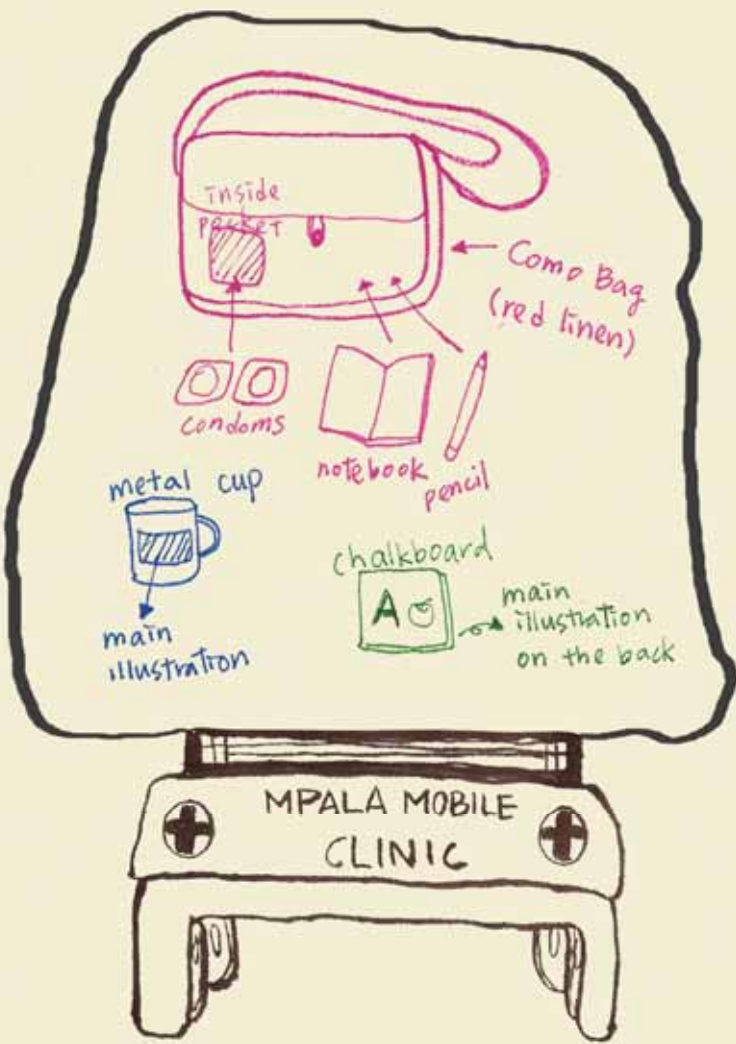 inside
pocket
Como Bag
(red linen)
condoms
notebook
pencil
metal cup
main
illustration
chalkboard
A
main
illustration
on the back
MPALA MOBILE
CLINIC